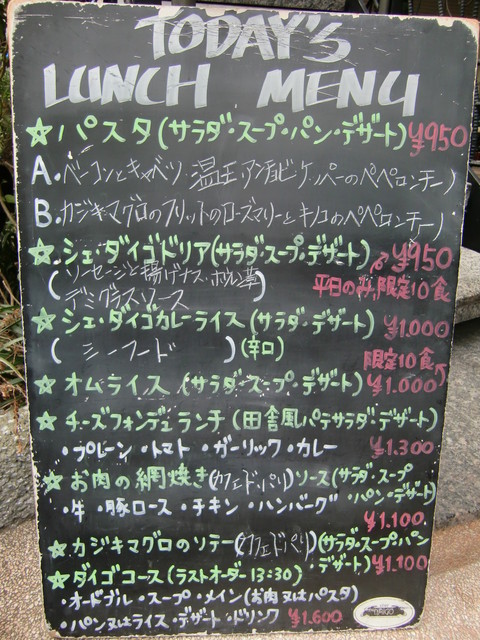 TODAY'S
LUNCH MENU
☆パスタ(サラダ・スープ・パン・デザート)¥950
A.ベーコンとキャベツ、温玉アンチョビ・ケッパーのペペロンチーノ
B.カジキマグロのフリットのローズマリーとキノコのペペロンチーノ
☆シェ・ダイゴドリア(サラダ・スープ・デザート)¥950
(ソーセージと揚げナス・ホウレン草
デミグラスソース) 平日のみ,限定10食
☆シェ・ダイゴカレーライス(サラダ・デザート)¥1.000
(シーフード)(辛口)
限定10食
☆オムライス(サラダ・スープ・デザート)¥1.000
☆チーズフォンデュランチ(田舎風パテサラダ・デザート)
・プレーン・トマト・ガーリック・カレー ¥1.300
☆お肉の網焼き(カフェ・ド・パリ)ソース(サラダ・スープ
・牛・豚ロース・チキン・ハンバーグ パン・デザート)
¥1.100
☆カジキマグロのソテー(カフェドパリ)(サラダ・スープ・パン
・デザート)¥1.100
☆ダイゴコース(ラストオーダー13:30)
・オードブル・スープ・メイン(お肉又はパスタ)
・パン又はライス・デザート・ドリンク ¥1.600